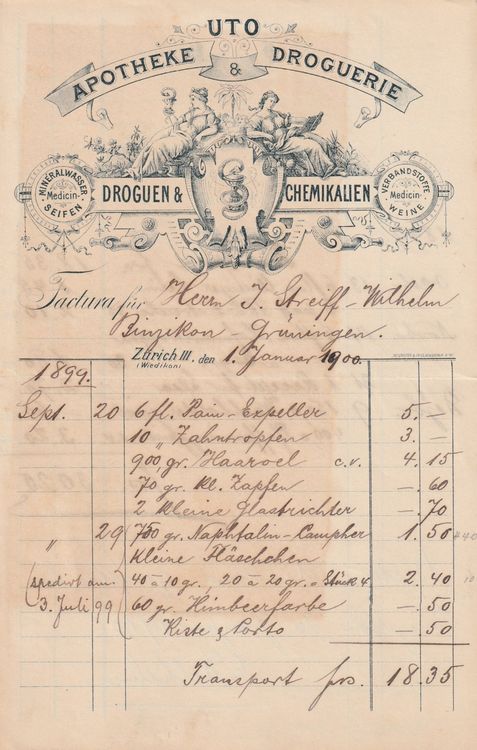 UTO
APOTHEKE & DROGUERIE
MINERALWASSER
Medicin-
SEIFEN
DROGUEN & CHEMIKALIEN
VERBANDSTOFFE
Medicin-
WEINE
Factura für Herrn J. Streiff-Wilhelm
Binzikon-Grüningen.
Zürich III, den 1. Januar 1900.
(Wiedikon)
1899.
Sept. 20 6 fl. Pain-Expeller 5. —
10 „ Zahntropfen 3. —
900 gr. Haaroel c.v. 4. 15
70 gr. kl. Zapfen —. 60
2 kleine Glastrichter —. 70
„ 29 750 gr. Naphtalin-Campher 1. 50
kleine Fläschchen
(spedirt am 40 à 10 gr., 20 à 20 gr. Stück 4. 2. 40
3. Juli 99) 60 gr. Himbeerfarbe —. 50
Kiste & Porto —. 50
Transport frs. 18. 35